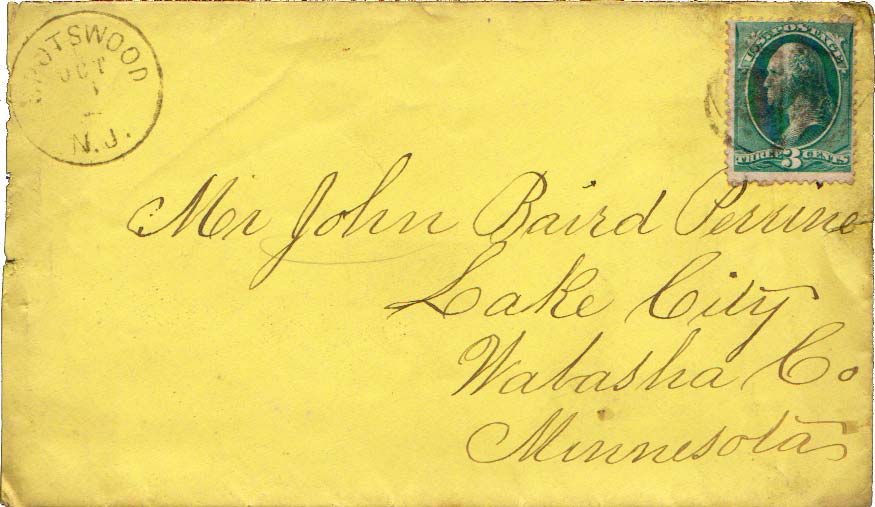 SPOTSWOOD
OCT
1
N.J.
U.S. POSTAGE
THREE 3 CENTS
Mr John Baird Perrine
Lake City
Wabasha Co
Minnesota